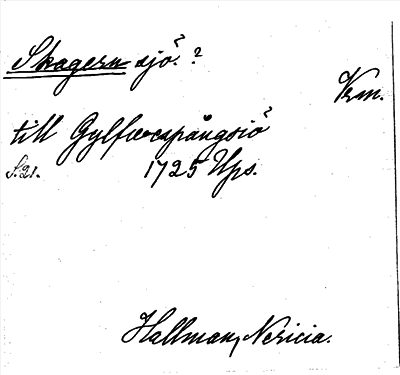 Skagern sjö?
Vrm.
till Gylfwaspångsiö
S. 21. 1725 Ups.
Hallman, Nericia.